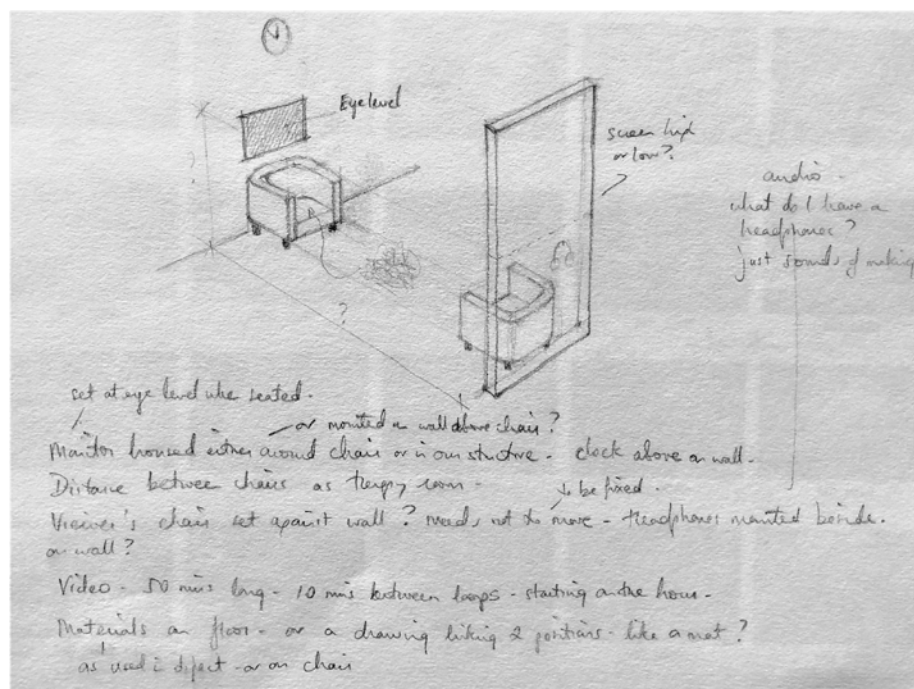 Eye level
screen high
or low?
audio -
what do I have on
headphones?
just sounds of making
?
?
set at eye level when seated.
or mounted on wall above chair?
Monitor housed either around chair or in own structure - clock above on wall -
Distance between chairs as therapy room -
to be fixed.
Viewer's chair set against wall? needs not to move - Headphones mounted beside.
on wall?
Video - 50 mins long - 10 mins between loops - starting on the hour -
Materials on floor - or a drawing linking 2 positions - like a mat?
as used i - or on chair